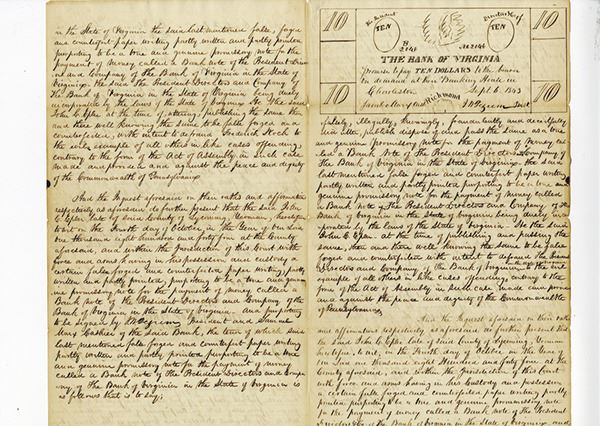 in the State of Virginia the said last mentioned false, forged
and counterfeit paper writing partly written and partly printed
purporting to be a true and genuine promissory note for the
payment of money called a Bank note of the President Direct
ors and Company of the Bank of Virginia in the State of
Virginia the said The President Directors and Company of
the Bank of Virginia in the State of Virginia being duly
incorporated by the laws of the State of Virginia He the said
John C Epler at the time of uttering, publishing the same then
and there well knowing the same to be false forged and
counterfeited, with intent to defraud Frederick
the evil example of all others in like cases offending,
contrary to the form of the Act of Assembly in such case
made and provided and against the peace and dignity
of the Commonwealth of Pennsylvania
And the Inquest aforesaid on their oaths and affirmations
respectively as aforesaid do further present that the said John
C Epler late of said County of Lycoming Yeoman, heretofore
to wit on the Fourth day of October, in the Year of our Lord
one thousand eight hundred and forty four at the County
aforesaid, and within the Jurisdiction of this Court with
force and arms having in his possession and custody a
certain false forged and counterfeited paper writing, partly
written and partly printed, purporting to be a true and genu
ine promissory note for the payment of money called a
Bank note of the President Directors and Company of the
Bank of Virginia in the State of Virginia and purporting
to be signed by President and Samuel
Marx Cashier of the said Bank, the tenor of which said
last mentioned false forged and counterfeit paper writing
partly written and partly printed purporting to be a true
and genuine promissory note for the payment of money
called a Bank note of the President Directors and Compa
ny, of the Bank of Virginia in the State of Virginia is
as follows that is to say;
10 TEN B 2146 No 2146 TEN 10
THE BANK OF VIRGINIA
Promise to pay TEN DOLLARS to the bearer
on demand at their Banking House in
Charleston Sept 6 1843
10 Richmond Prest 10
falsely, illegally, knowingly, fraudulently and deceitfully
did utter, publish dispose of and pass the same as a true
and genuine promissory note for the payment of money cal
led a Bank Note of the President Directors & Company of
the Bank of Virginia in the State of Virginia the said
last mentioned false forged and counterfeit paper writing
partly written and partly printed purporting to be a true and
genuine promissory note for the payment of money called
a Bank note of the President Directors and Company of the
Bank of Virginia in the State of Virginia being duly incor
porated by the laws of the State of Virginia. He the said
John C Epler at the time of publishing and passing the
same, then and there well knowing the same to be false
forged and counterfeited with intent to defraud The President
Directors and Company, of the Bank of Virginia, to the evil
example of all others in like cases offending, contrary to the
form of the Act of Assembly in such case made and provided
and against the peace and dignity of the Commonwealth
of Pennsylvania,
And the Inquest aforesaid on their oaths
and affirmations respectively as aforesaid do further present that
the said John C Epler late of said County of Lycoming, Yeoman
heretofore, to wit, on the Fourth day of October in the Year of
our Lord one thousand eight hundred and forty four at the
County aforesaid, and within the Jurisdiction of this Court
with force and arms having in his custody and possession
a certain false forged and counterfeited paper writing partly
printed purporting to be a true and genuine promissory note
for the payment of money called a Bank note of the President
Directors & Co of the Bank of Virginia in the State of Virginia and